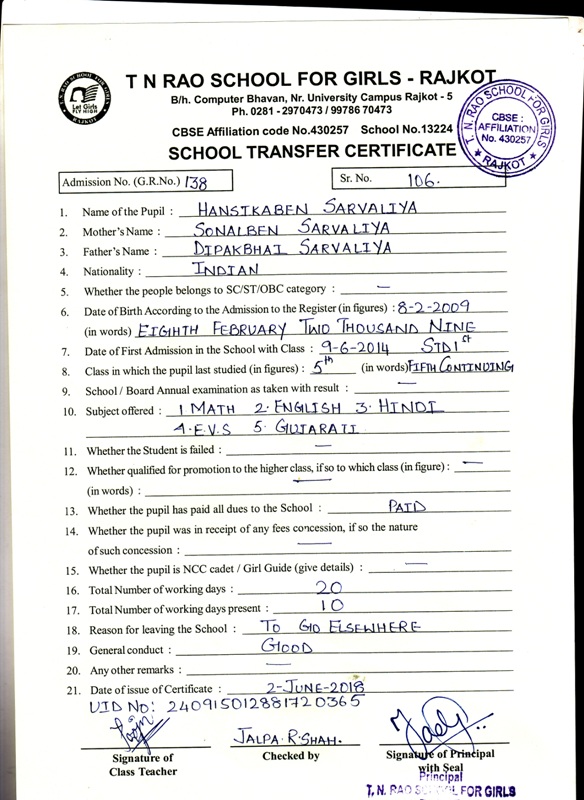 T N RAO SCHOOL FOR GIRLS - RAJKOT
B/h. Computer Bhavan, Nr. University Campus Rajkot - 5
Ph. 0281 - 2970473 / 99786 70473
CBSE Affiliation code No.430257 School No.13224
SCHOOL TRANSFER CERTIFICATE
T. N. RAO SCHOOL FOR GIRLS
RAJKOT
Let Girls
FLY HIGH
T. N. RAO SCHOOL FOR GIRLS
CBSE :
AFFILIATION
No. 430257
★ RAJKOT ★
Admission No. (G.R.No.) 138
Sr. No. 106.
1. Name of the Pupil : HANSIKABEN SARVALIYA
2. Mother's Name : SONALBEN SARVALIYA
3. Father's Name : DIPAKBHAI SARVALIYA
4. Nationality : INDIAN
5. Whether the people belongs to SC/ST/OBC category : —
6. Date of Birth According to the Admission to the Register (in figures) : 8-2-2009
(in words) EIGHTH FEBRUARY TWO THOUSAND NINE
7. Date of First Admission in the School with Class : 9-6-2014 STD 1st
8. Class in which the pupil last studied (in figures) : 5th (in words) FIFTH CONTINUING
9. School / Board Annual examination as taken with result : —
10. Subject offered : 1 MATH 2. ENGLISH 3. HINDI
4. E.V.S 5. GUJARATI
11. Whether the Student is failed : —
12. Whether qualified for promotion to the higher class, if so to which class (in figure) : —
(in words) : —
13. Whether the pupil has paid all dues to the School : PAID
14. Whether the pupil was in receipt of any fees concession, if so the nature
of such concession : —
15. Whether the pupil is NCC cadet / Girl Guide (give details) : —
16. Total Number of working days : 20
17. Total Number of working days present : 10
18. Reason for leaving the School : TO GO ELSEWHERE
19. General conduct : GOOD
20. Any other remarks : —
21. Date of issue of Certificate : 2-JUNE-2018
UID NO: 240915012881720365
JALPA.R.SHAH.
Signature of
Class Teacher
Checked by
Signature of Principal
with Seal
Principal
T. N. RAO SCHOOL FOR GIRLS